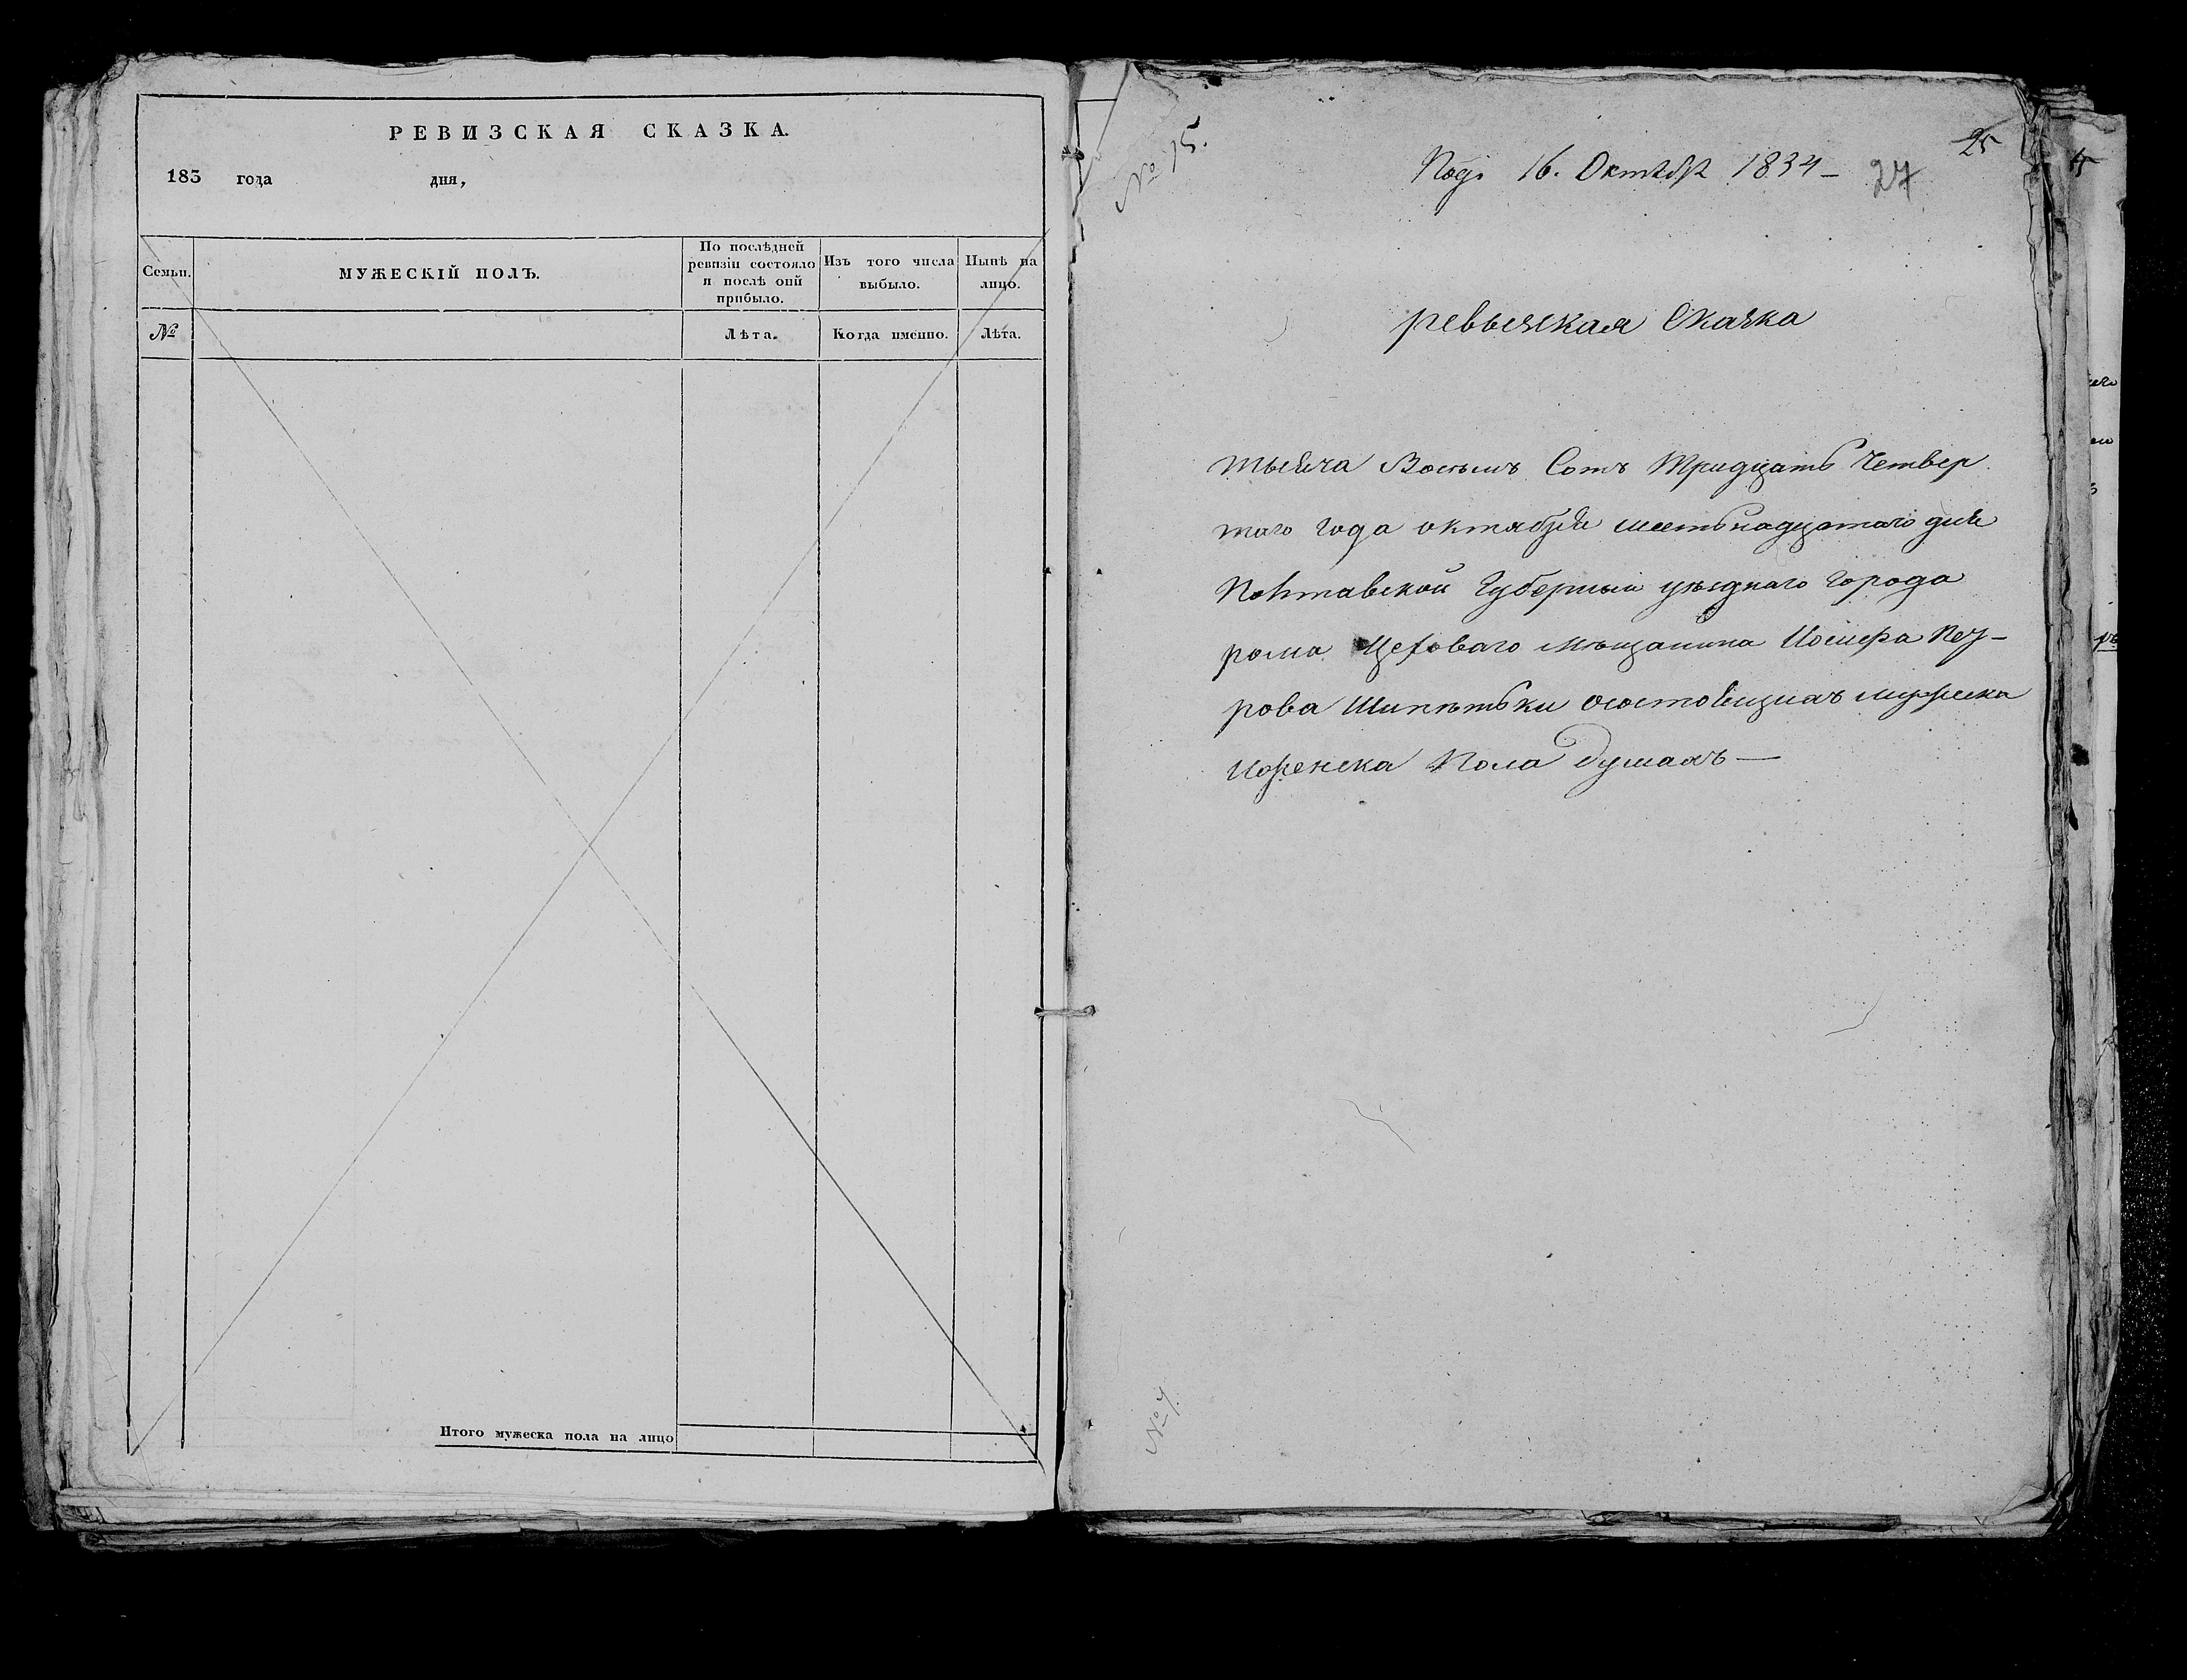 РЕВИЗСКАЯ СКАЗКА.
183 года дня,
Семьи.
МУЖЕСКІЙ ПОЛЪ.
По послѣдней
ревизіи состояло
и послѣ оий
прибыло.
Изъ того числа
выбыло.
Нынѣ на
лицо.
№
Лѣта.
Когда именно.
Лѣта.
Итого мужеска пола на лицо
№ 15.
16. Октября 1834
25
27
ревызская Сказка
тысяча Восъмъ Сотъ Тридцать Четвер
таго года октября шестьнадцатаго дня
Полтавской Губерныи уѣзднаго города
ромна Цеховаго мѣщанина Иосифа
рова осостоящихъ мужеска
иженска Пола душахъ —
№ 7.